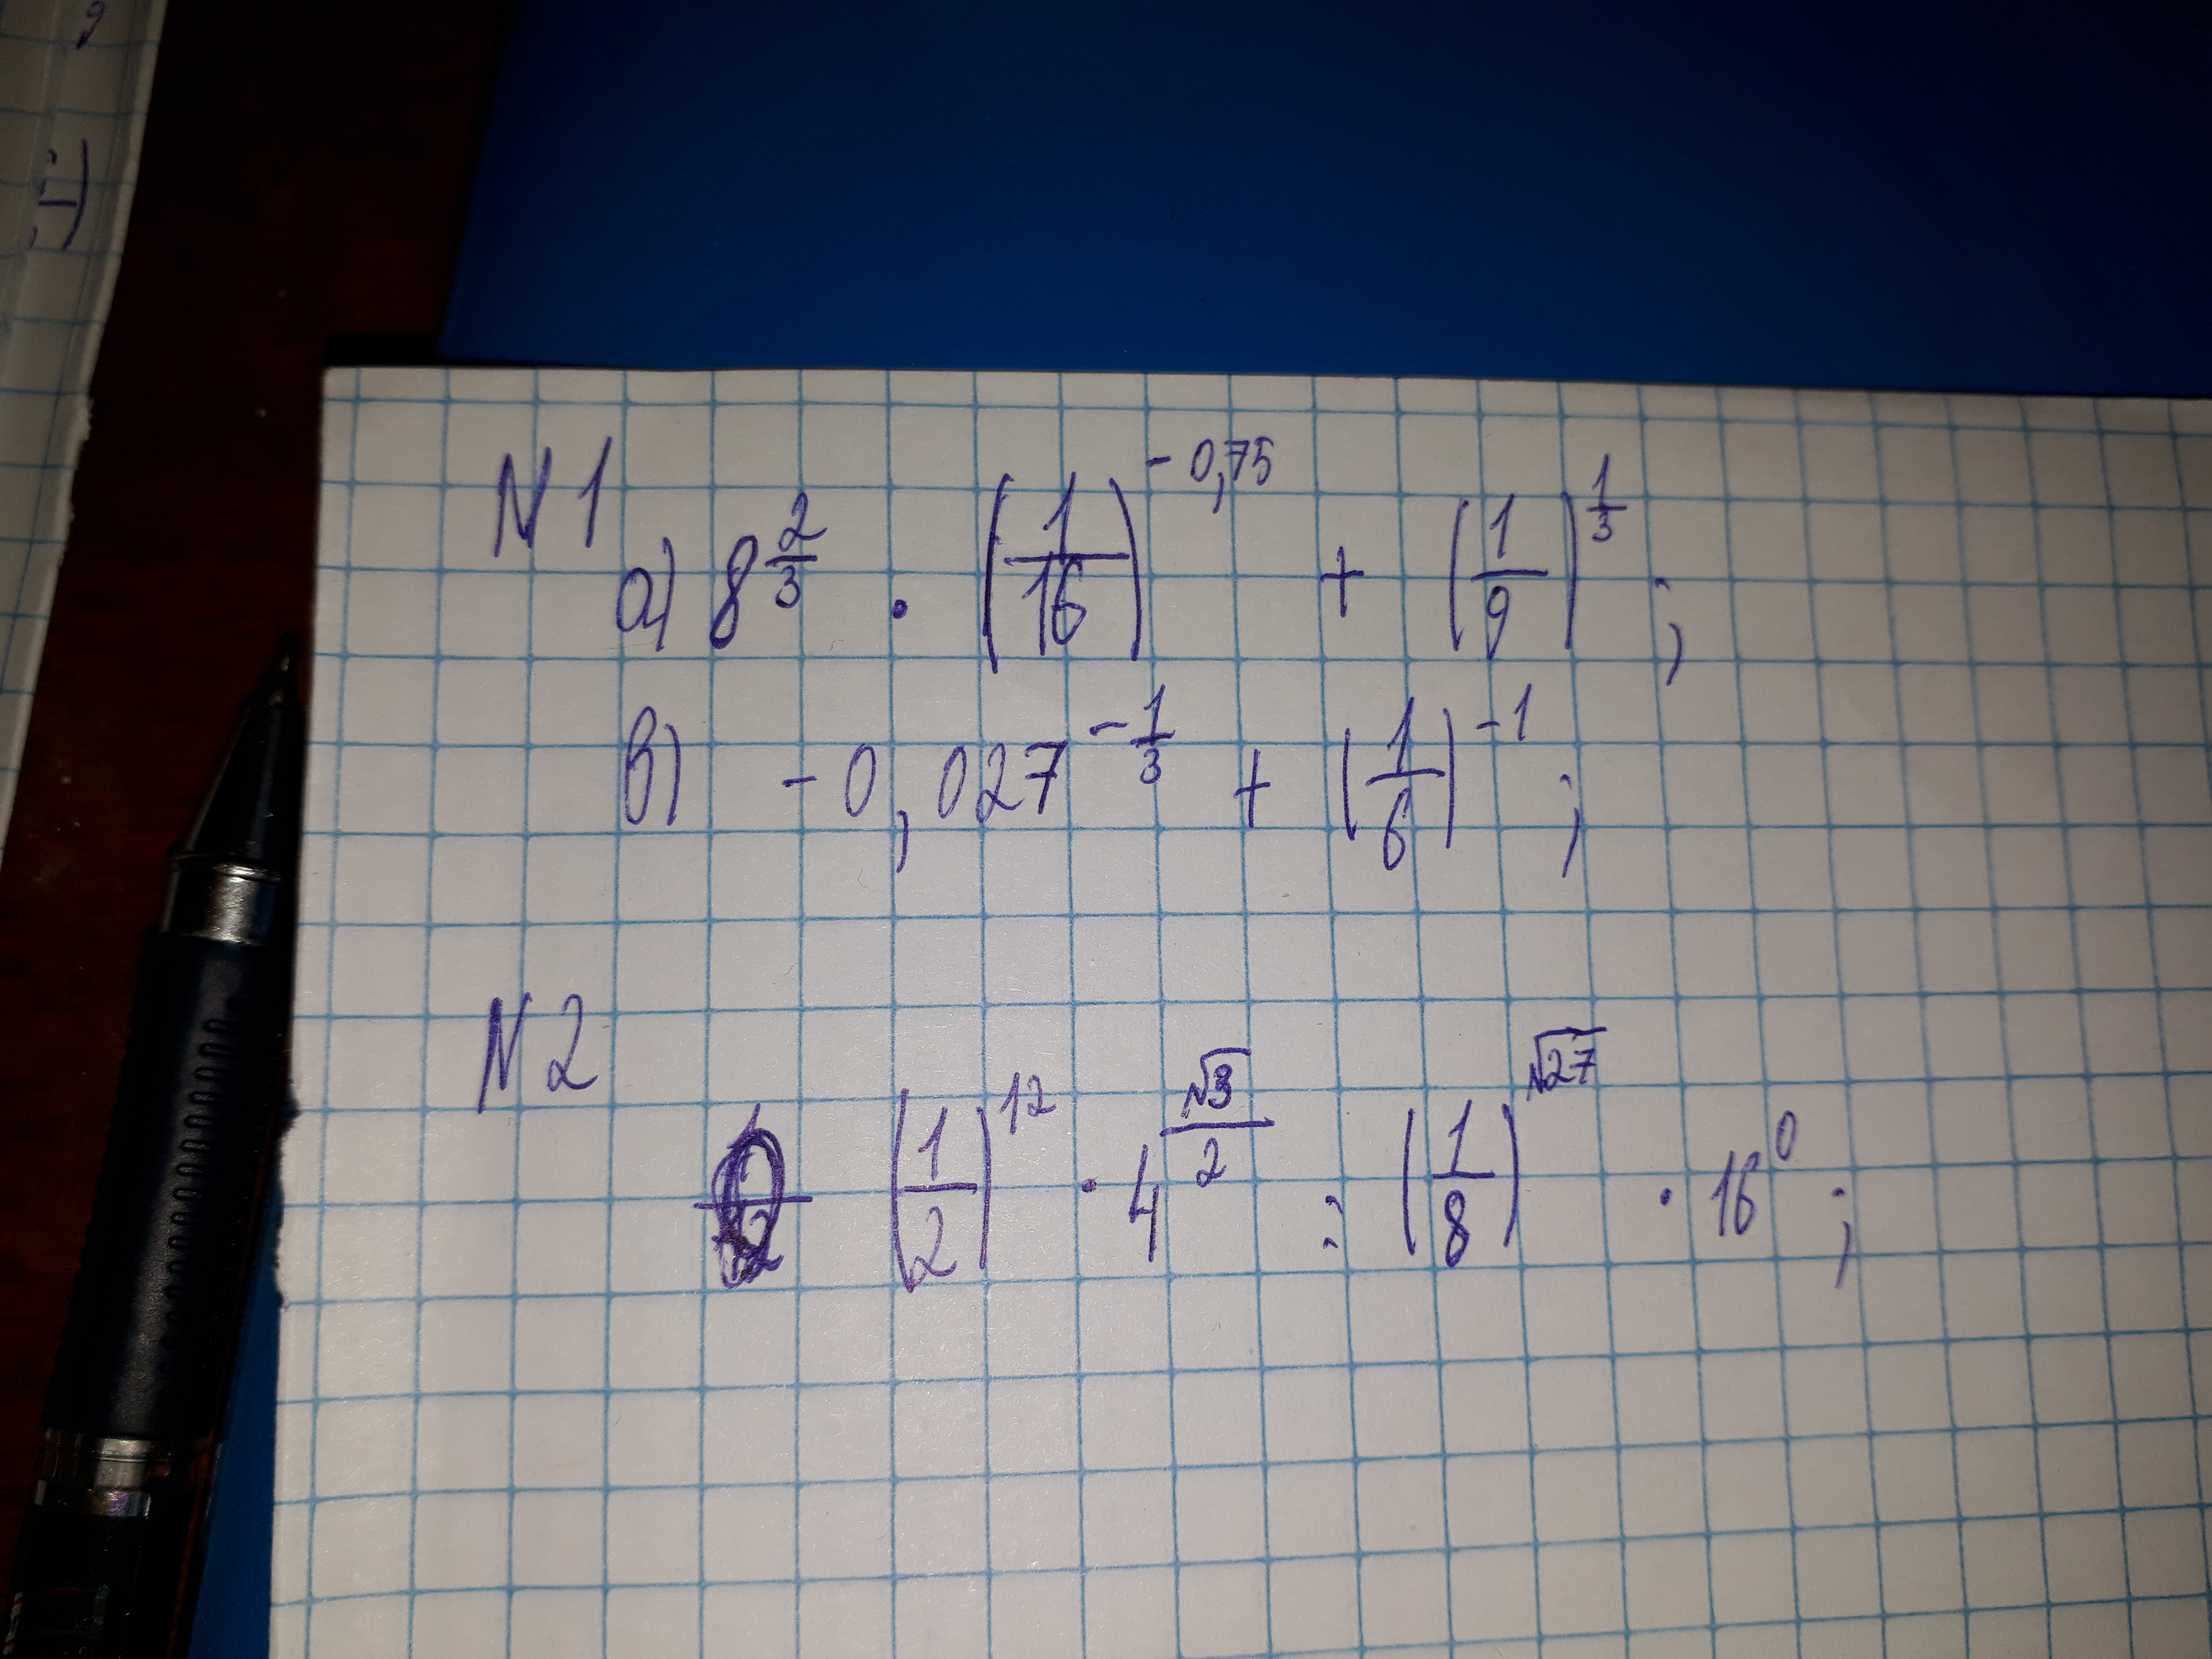 N 1
а) 8^(2/3) · (1/16)^(-0,75) + (1/9)^(1/3) ;
в) -0,027^(-1/3) + (1/6)^(-1) ;
N 2
(1/2)^12 · 4^(√3/2) : (1/8)^(√27) · 16^0 ;